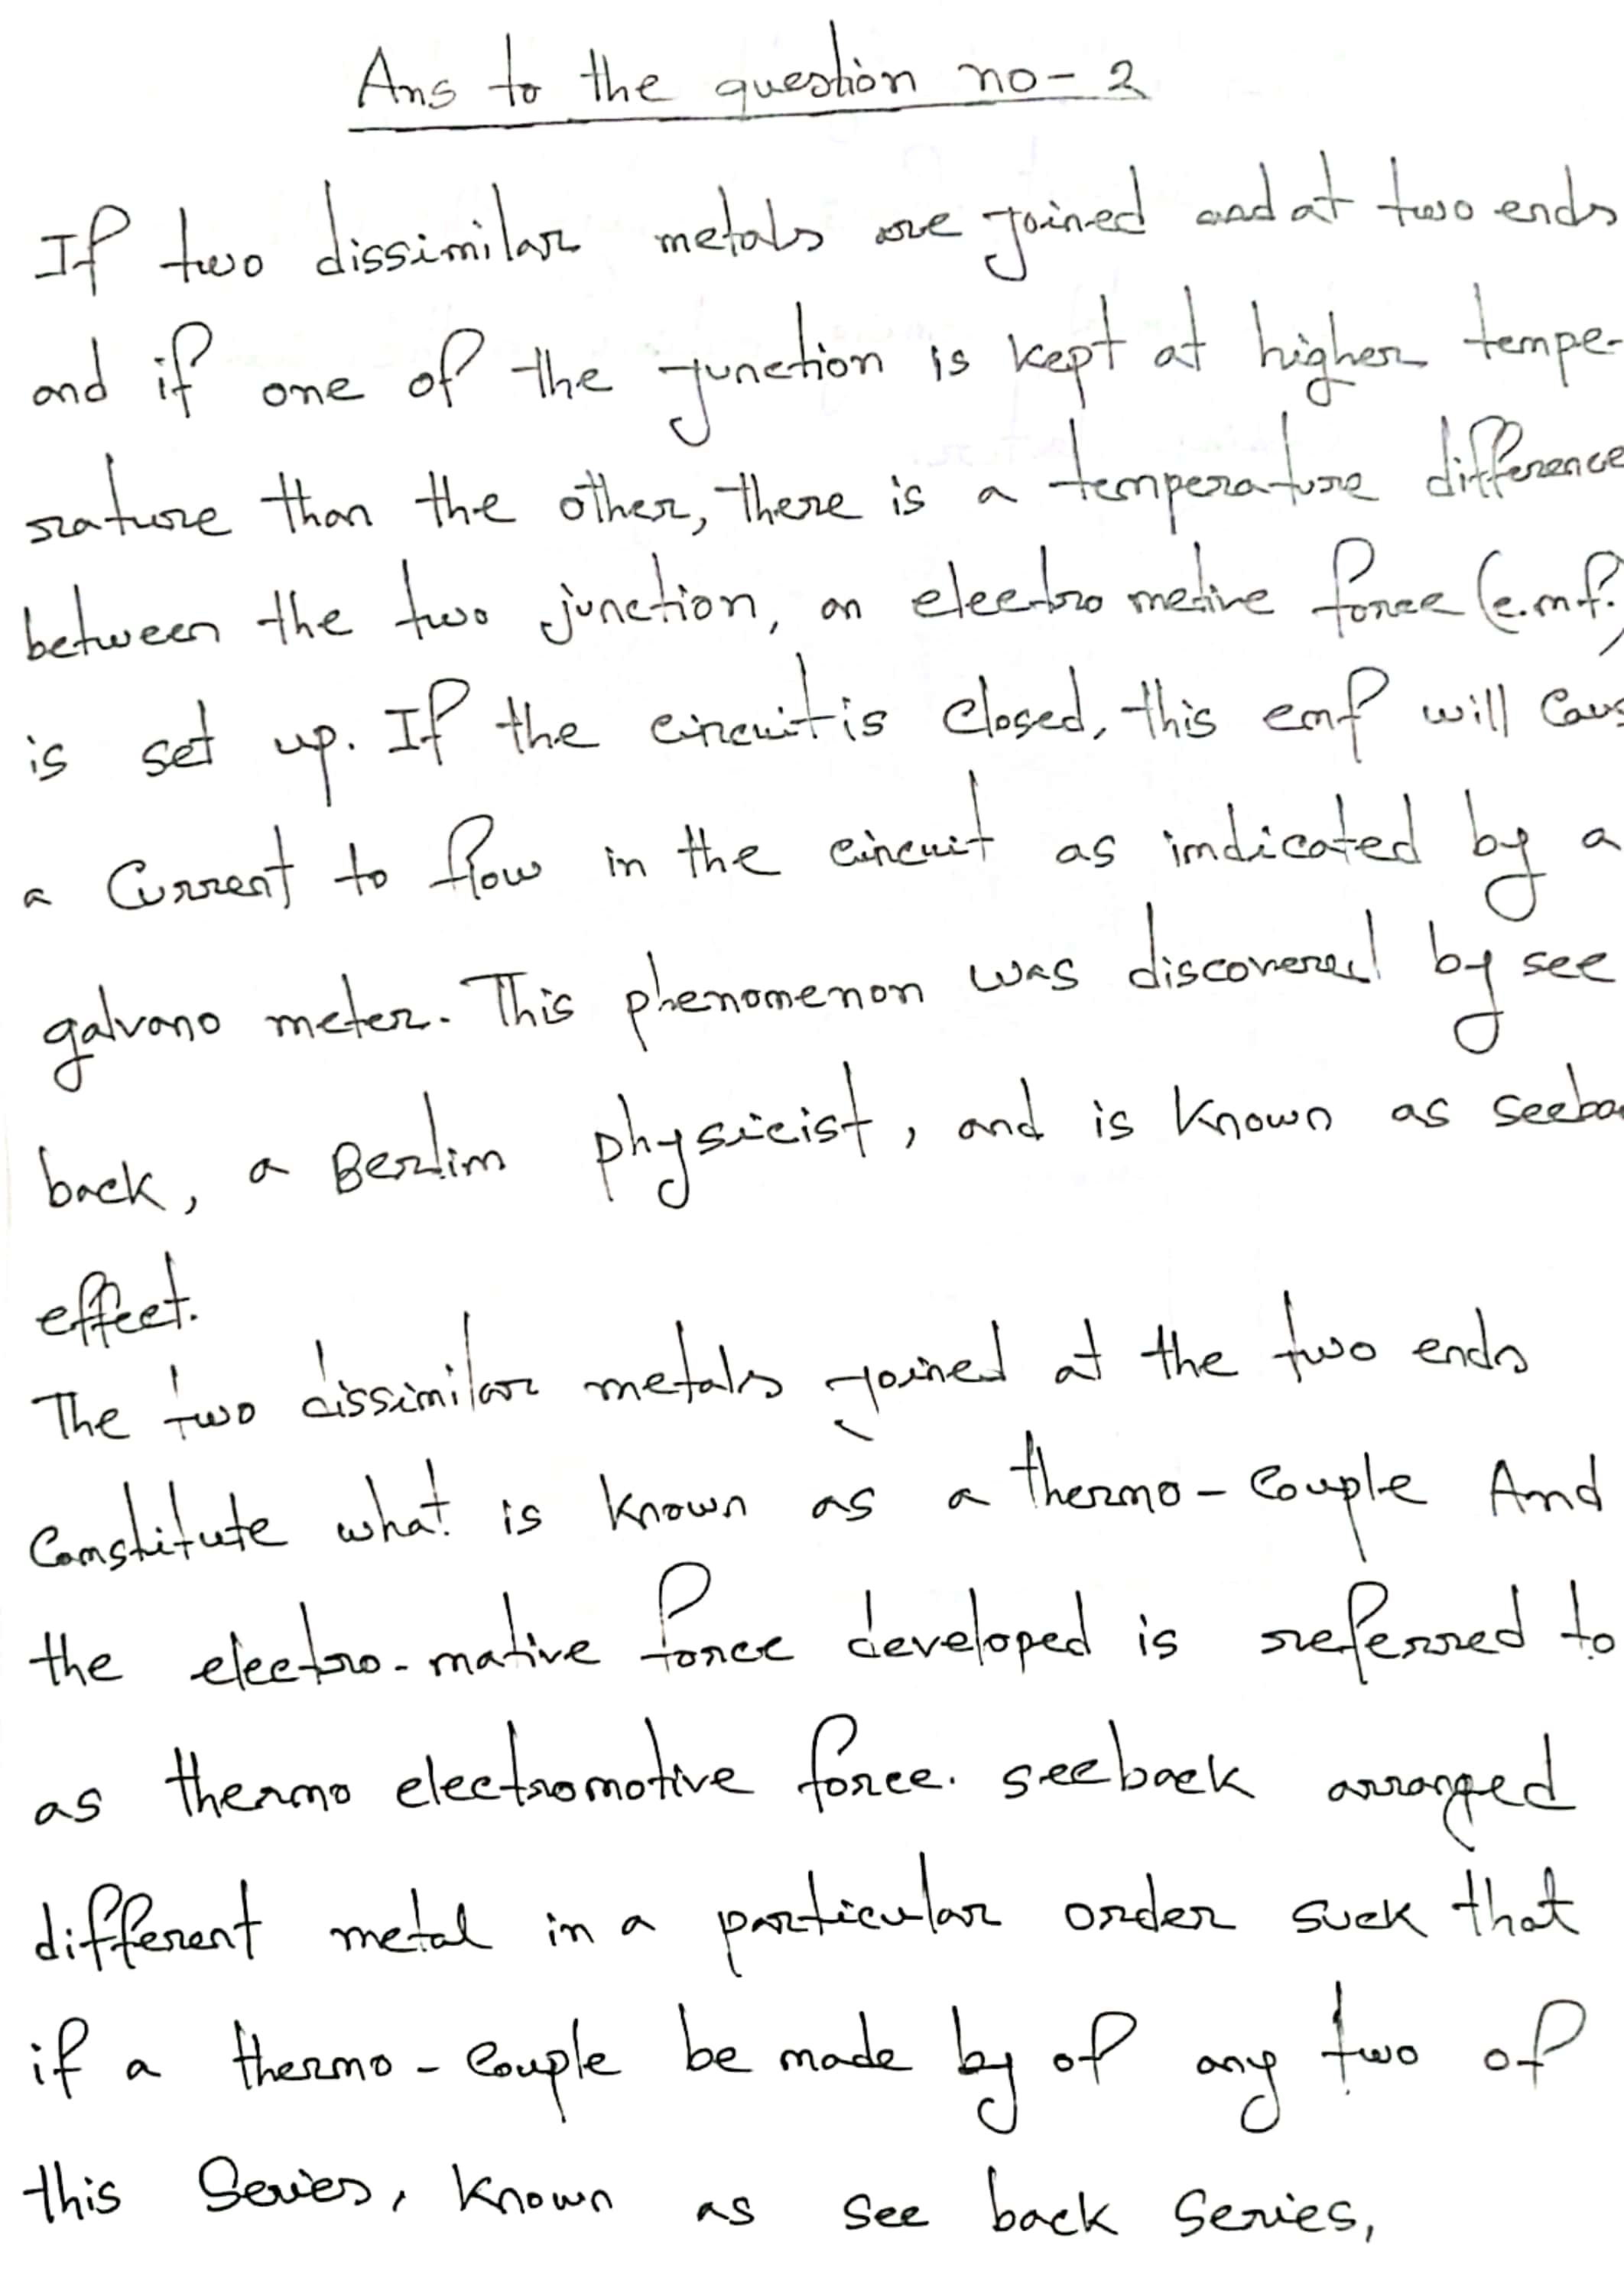 Ans to the question no- 2
If two dissimilar metals are joined and at two ends
and if one of the junction is kept at higher tempe-
rature than the other, there is a temperature difference
between the two junction, an electro metive force (e.mf.)
is set up. If the circuit is closed, this emf will Caus
a Current to flow in the circuit as indicated by a
galvano meter. This phenomenon was discovered by see
back, a Berlin physicist, and is known as seeba
effect.
The two dissimilar metals joined at the two ends
Constitute what is known as a thermo-Couple And
the electro-mative force developed is referred to
as thermo electromotive force. seeback arranged
different metal in a particular order suck that
if a thermo-Couple be made by of any two of
this Series, known as see back Series,